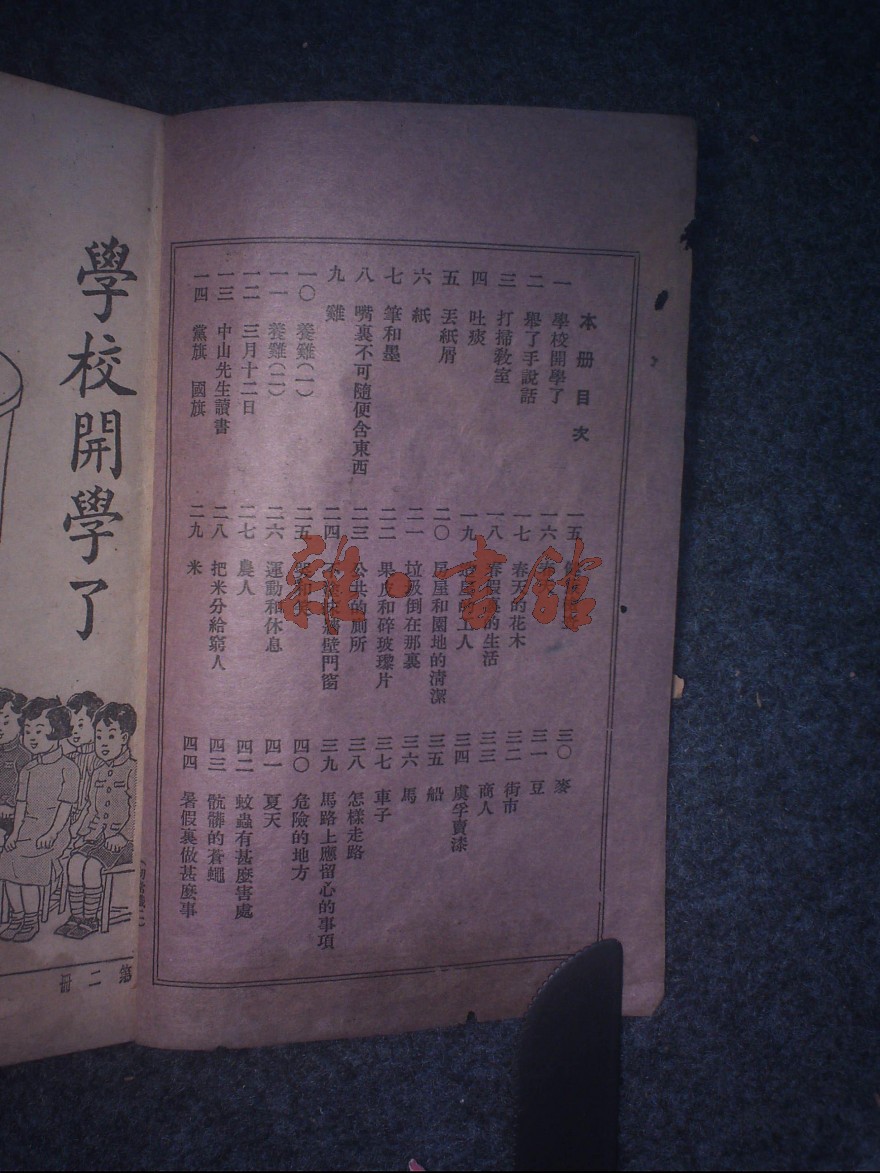 本册目次
一 學校開學了
二 舉了手說話
三 打掃教室
四 吐痰
五 丟紙屑
六 紙
七 筆和墨
八 嘴裏不可隨便含東西
九 雞
一〇 養雞(一)
一一 養雞(二)
一二 三月十二日
一三 中山先生讀書
一四 黨旗 國旗
一五
一六
一七 春天的花木
一八 春假裏的生活
一九 造房的工人
二〇 房屋和園地的清潔
二一 垃圾倒在那裏
二二 果皮和碎玻璃片
二三 公共的廁所
二四 牆壁門窗
二五
二六 運動和休息
二七 農人
二八 把米分給窮人
二九 米
三〇 麥
三一 豆
三二 街市
三三 商人
三四 虞孚賣漆
三五 船
三六 馬
三七 車子
三八 怎樣走路
三九 馬路上應留心的事項
四〇 危險的地方
四一 夏天
四二 蚊蟲有甚麼害處
四三 骯髒的蒼蠅
四四 暑假裏做甚麼事
雜·書館
學校開學了
第二册